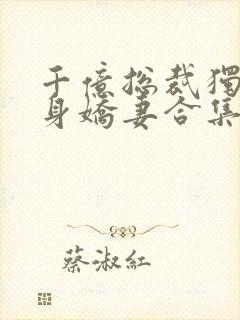 千億总裁獨
身嬌妻合集
蔡淑紅